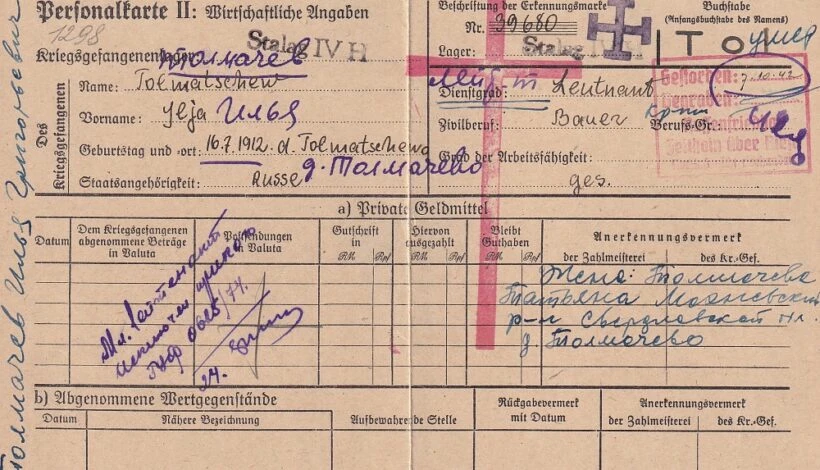 Personalkarte II: Wirtschaftliche Angaben
Beschriftung der Erkennungsmarke
Nr. 39680
Buchstabe
(Anfangsbuchstabe des Namens)
1298
Stalag IV H
Lager: Stalag
T О
Kriegsgefangenenlager:
Толмачев
Des Kriegsgefangenen
Name: Tolmatschew
Dienstgrad: Leutnant
Gestorben: 7.10.42
Begraben:
Vorname: Ilja Илья
Zivilberuf: Bauer
Berufs-Gr.
Geburtstag und -ort: 16.7.1912. d. Tolmatschewo
д. Толмачево
Grad der Arbeitsfähigkeit:
Staatsangehörigkeit: Russe
ges.
a) Private Geldmittel
Datum
Dem Kriegsgefangenen abgenommene Beträge in Valuta
Paßsendungen in Valuta
Gutschrift in
RM Rpf
Hiervon ausgezahlt
RM Rpf
Bleibt Guthaben
RM Rpf
Anerkennungsvermerk
der Zahlmeisterei
des Kr.-Gef.
Жена: Толмачева
Татьяна
р-н Свердловской
д. Толмачево
Мл. Лейтенант
0625/44.
24.
b) Abgenommene Wertgegenstände
Datum
Nähere Bezeichnung
Aufbewahrende Stelle
Rückgabevermerk mit Datum
Anerkennungsvermerk
der Zahlmeisterei
des Kr.-Gef.
Толмачев Илья Григорьевич